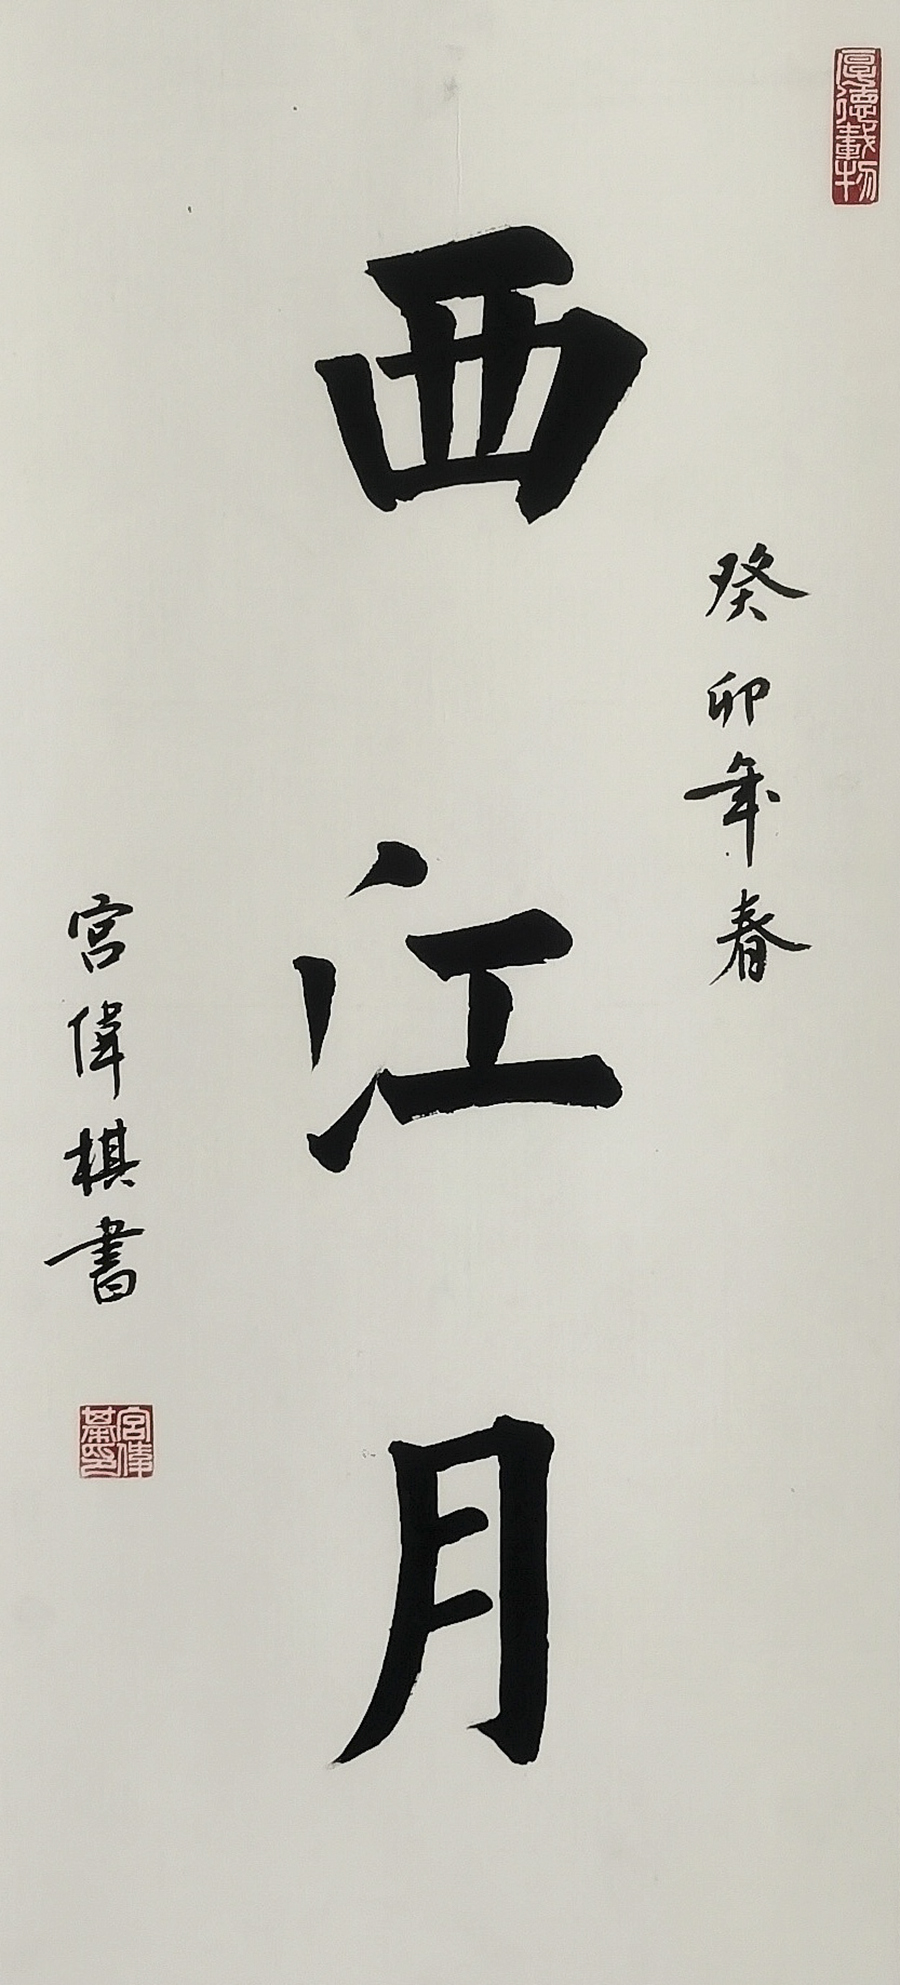 厚德載物
癸卯年春
西江月
宮偉棋書
宮偉棊印